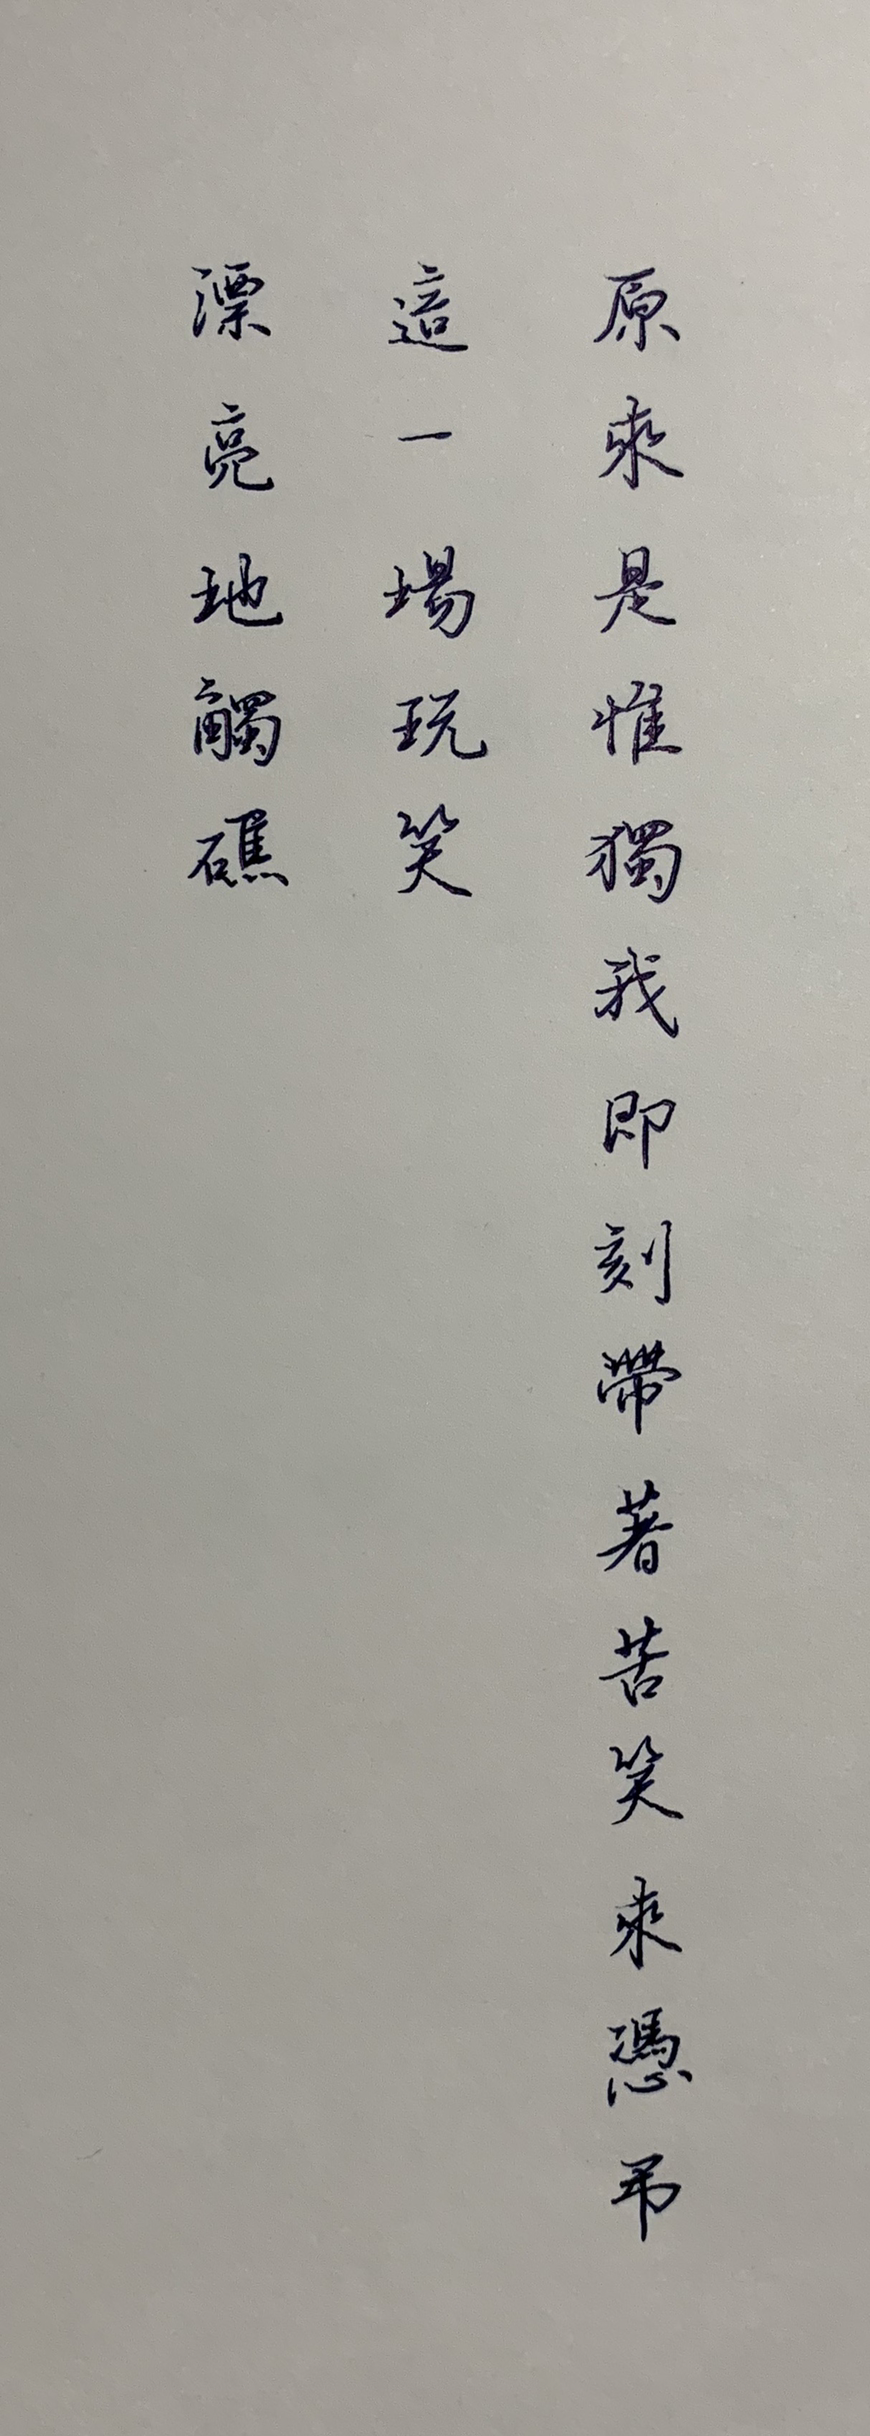 原來是惟獨我即刻帶著苦笑來憑弔
這一場玩笑
漂亮地觸礁